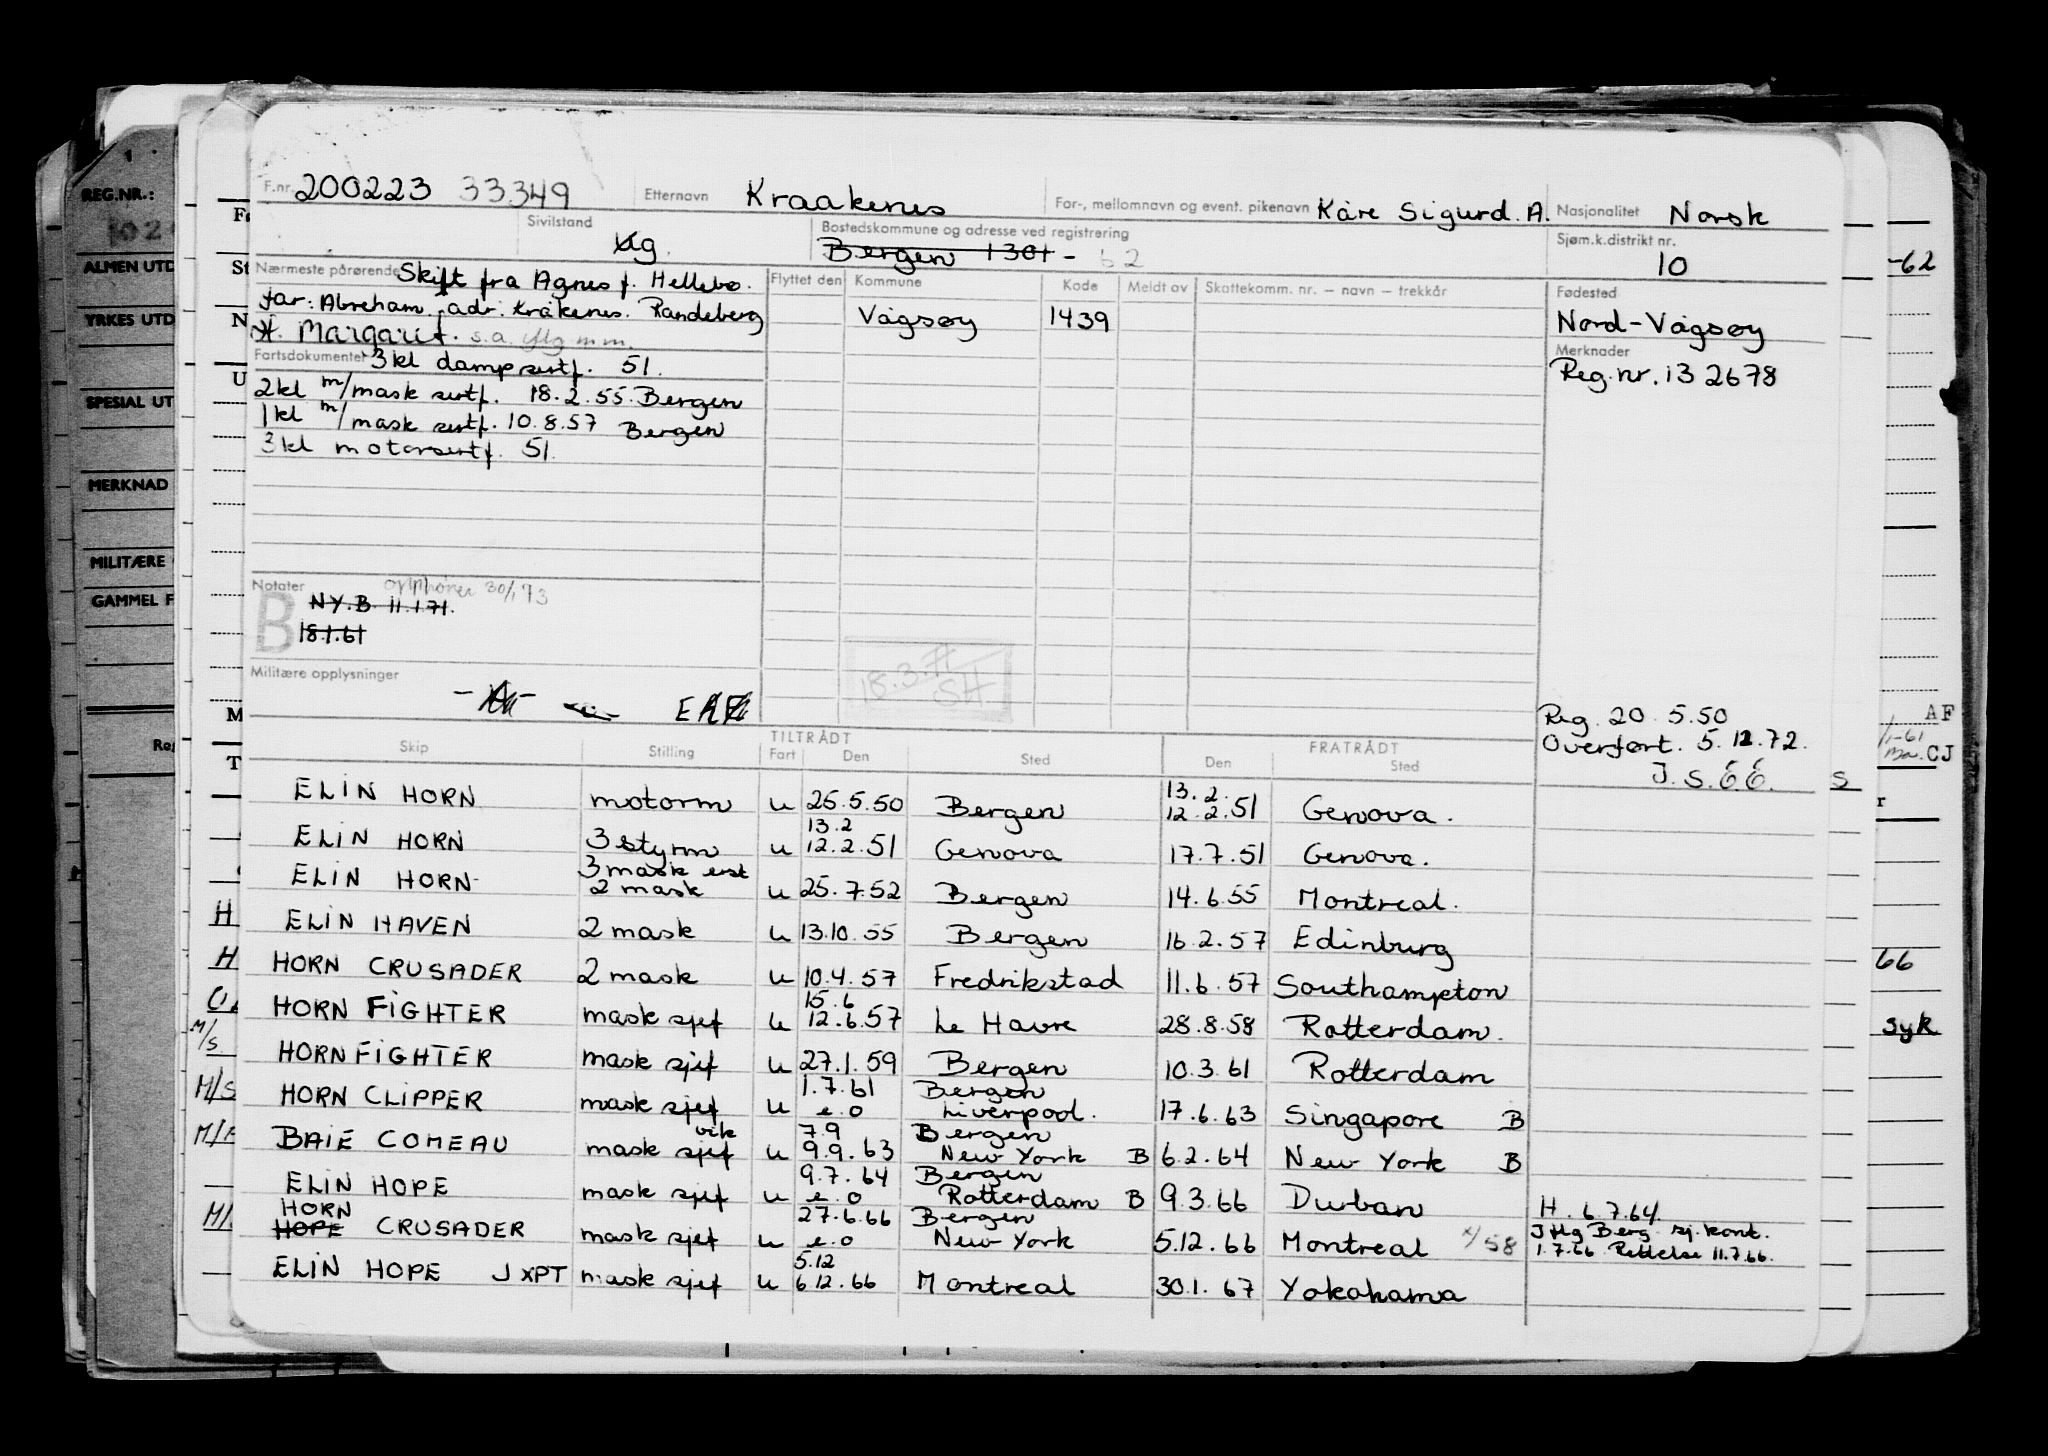 F.nr. 200223 33349 Etternavn Kraakenes For-, mellomnavn og event. pikenavn Kåre Sigurd. A. Nasjonalitet Norsk
Sivilstand g. Bostedskommune og adresse ved registrering Bergen 1301 - 62 Sjøm.k.distrikt nr. 10
Nærmeste pårørende Skift fra Agnes f. Hellebø. Flyttet den Kommune Kode Meldt av Skattekomm. nr. — navn — trekkår Fødested
far: Abreham. adr. Kråkenes. Randeberg Vågsøy 1439 Nord-Vågsøy
H. Margarit. s.a.
Merknader
Reg.nr. 132678
Fartsdokumenter 3kl dampsertf. 51.
2kl m/mask sertf. 18.2.55. Bergen
1kl m/mask sertf. 10.8.57 Bergen
3kl motorsertf. 51.
Notater opphører 30/1 73
B NY.B. 11.1.71.
18.1.61
Militære opplysninger
18.3.71
SH
Reg. 20.5.50
Overført. 5.12.72.
J.S.
Skip Stilling TILTRÅDT Fart Den Sted FRATRÅDT Den Sted
ELIN HORN motorm u 25.5.50 Bergen 13.2. 12.2.51 Genova.
ELIN HORN 3 styrm u 13.2 12.2.51 Genova 17.7.51 Genova.
ELIN HORN 3 mask 2 mask u 25.7.52 Bergen 14.6.55 Montreal.
ELIN HAVEN 2 mask u 13.10.55 Bergen 16.2.57 Edinburg
HORN CRUSADER 2 mask u 10.4.57 Fredrikstad 11.6.57 Southampton
HORN FIGHTER mask sjef u 15.6 12.6.57 Le Havre 28.8.58 Rotterdam.
HORN FIGHTER mask sjef u 27.1.59 Bergen 10.3.61 Rotterdam
HORN CLIPPER mask sjef u 1.7.61 e.o Bergen Liverpool. 17.6.63 Singapore B
BAIE COMEAU mask sjef vik u 7.9 9.9.63 Bergen New York B 6.2.64 New York B
ELIN HOPE mask sjef u 9.7.64 e.o Bergen Rotterdam B 9.3.66 Durban H. 6.7.64.
HORN HOPE CRUSADER mask sjef u 27.6.66 e.o Bergen New York 5.12.66 Montreal x/58 J Hg Berg sj.kont. 1.7.66 Rettelse 11.7.66.
ELIN HOPE JXPT mask sjef u 5.12 6.12.66 Montreal 30.1.67 Yokohama
REG.NR.:
ALMEN UTD
YRKES UTD
SPESIAL UT
MERKNAD
MILITÆRE
GAMMEL F
Reg
-62
AF
CJ
66
syk